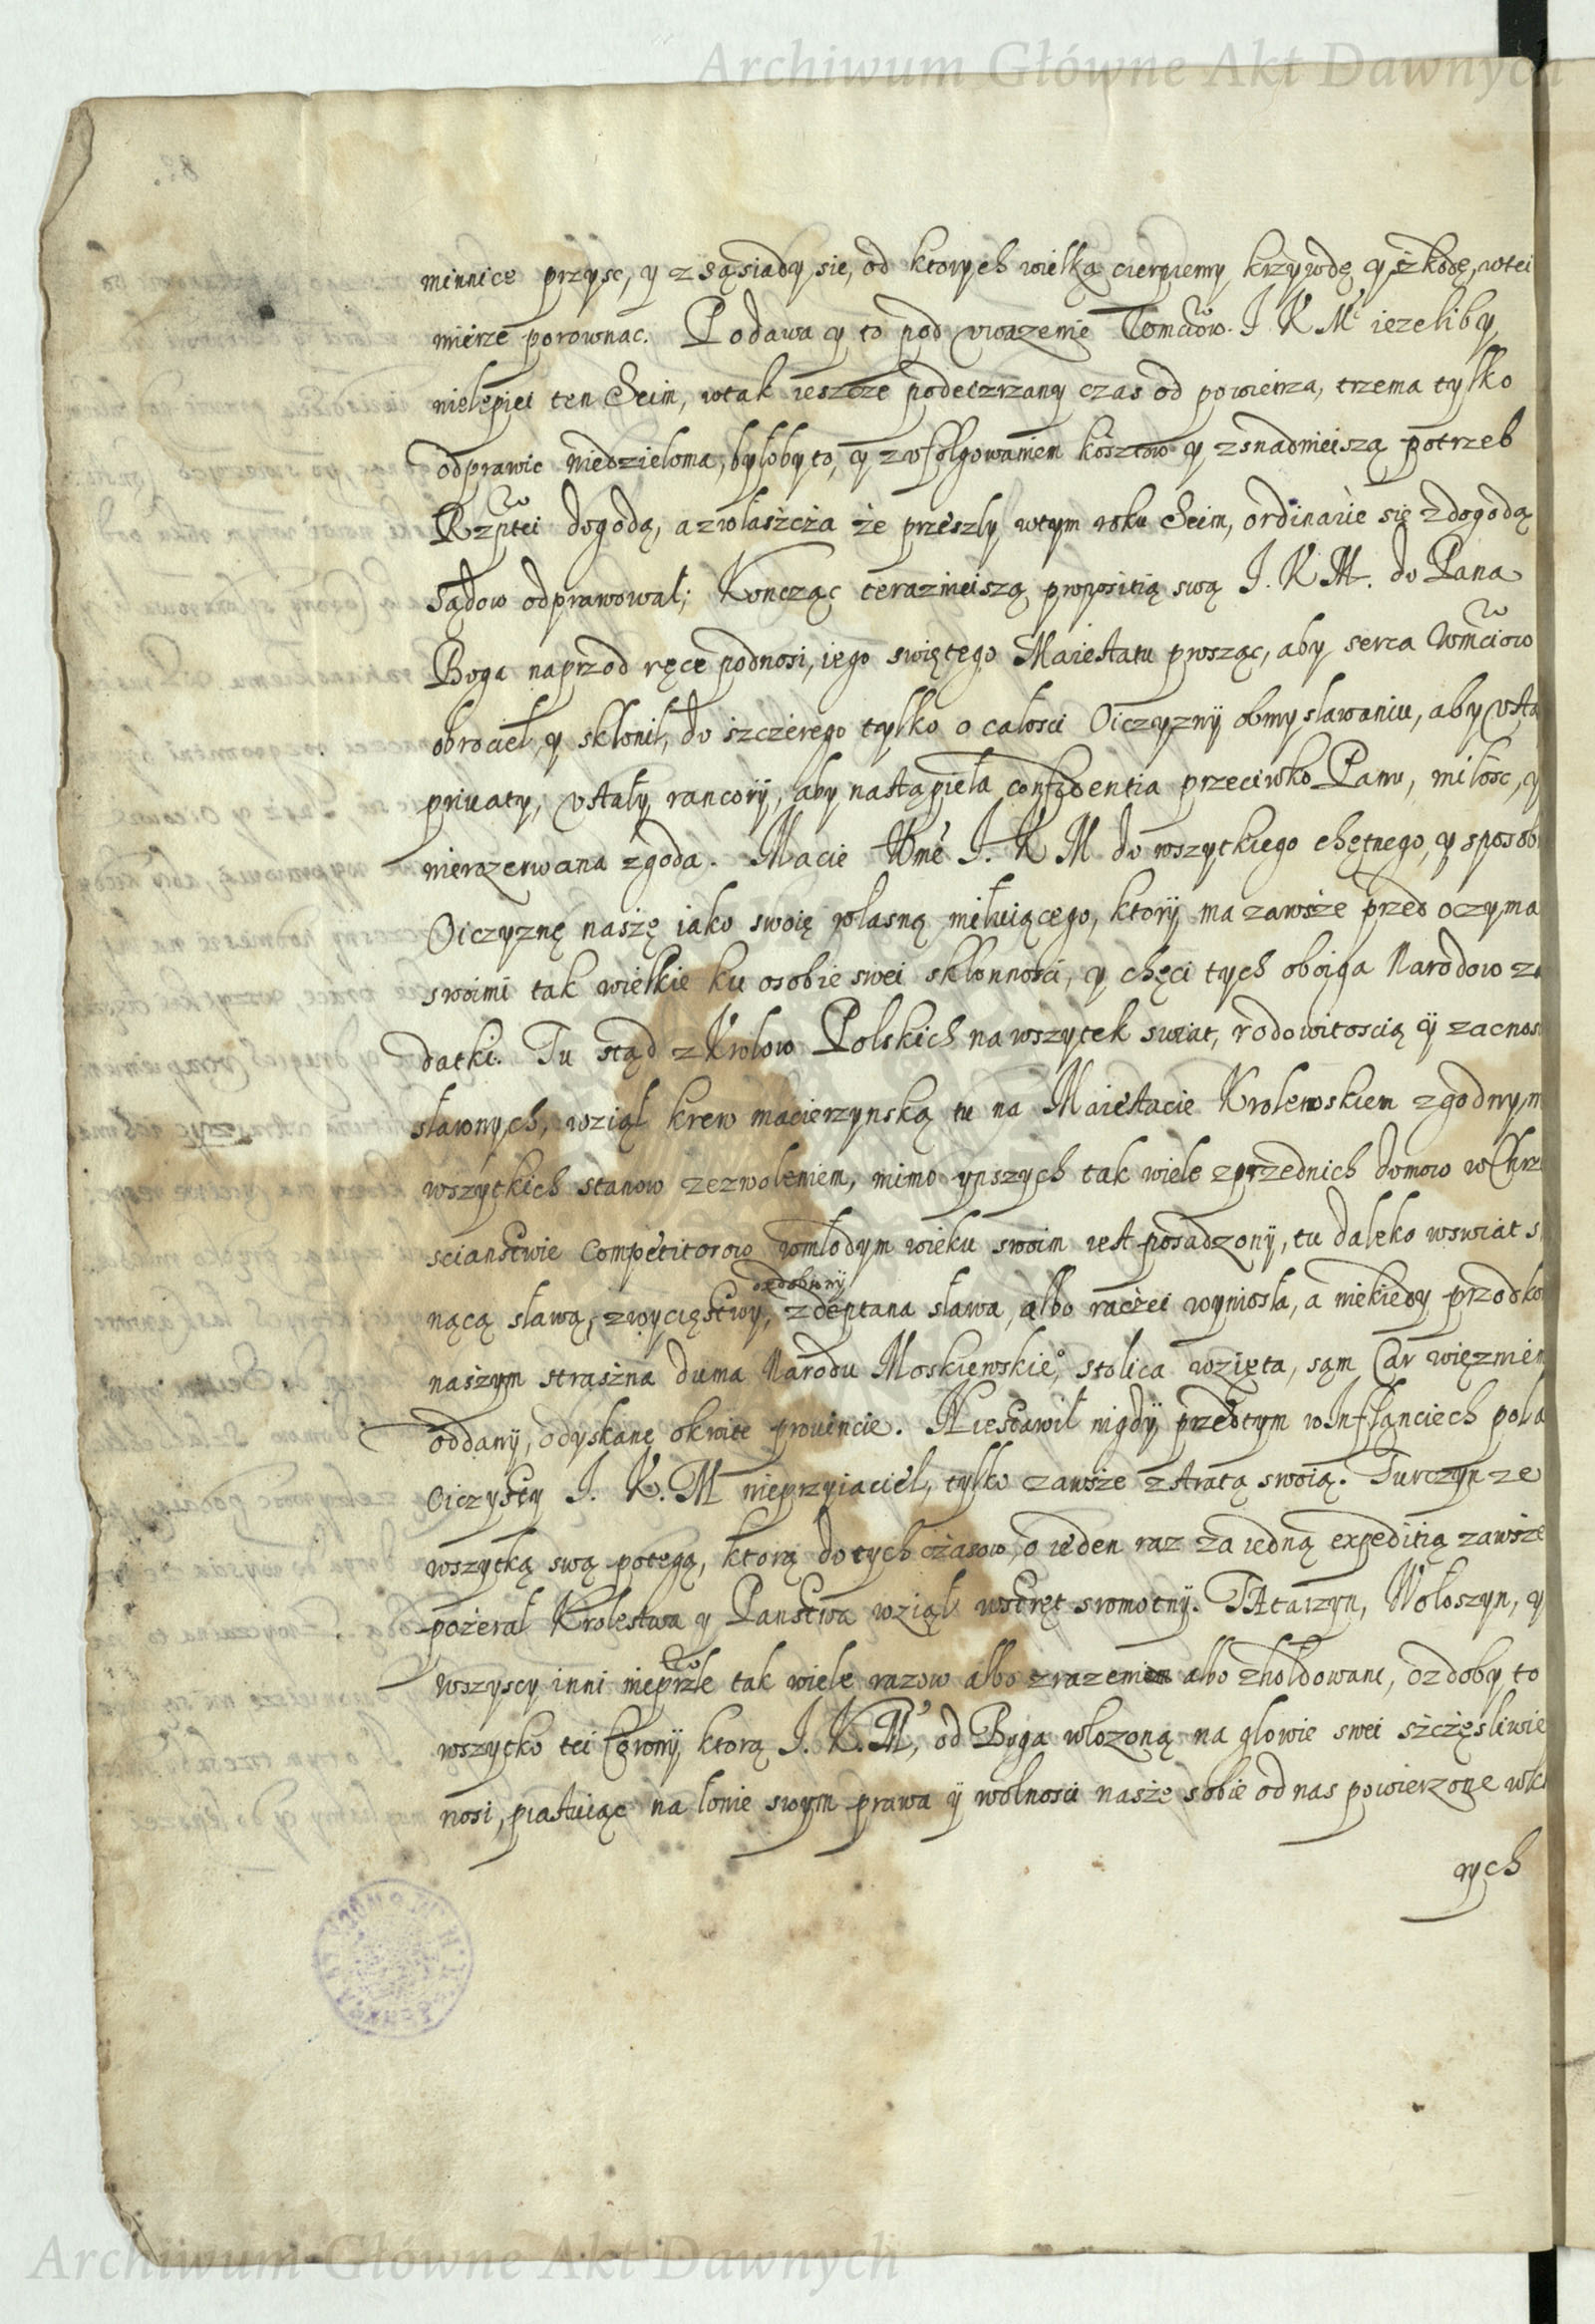 Archiwum Główne Akt Dawnych
minnice przysc, y z sąsiady się, od ktorych wielką cierpiemy krzywdę y szkodę, w tei
mierze porownac. Podawa y to pod uwazenie Wmciow. J K Mc iezeliby
nielepiei ten Seim, w tak ieszcze podeizrzany czas od powietrza, trzema tylko
odprawic niedzieloma, byłoby to, y z ufolgowaniem kosztow y z snadnieiszą potrzeb
Rzptei dogodą, a zwłaszcza że przeszly w tym roku Seim, ordinarie się z dogodą
sądow odprawował; Koncząc teraznieiszą propositią swą J. K M. do Pana
Boga naprzod ręce podnosi, iego swiętego Maiestatu prosząc, aby serca Wmciow
obrocieł, y skłonił, do szczerego tylko o całosci Oiczyznÿ obmyslawaniu, aby usta
priuaty, ustały rancorÿ, aby nastąpieła confidentia przeciwko Panu, miłosc, y
nierozerwana zgoda. Macie Wmc J. K M do wszytkiego chętnego, y sposob
Oiczyznę naszę iako swoię własną miłuiącego, ktorÿ ma zawsze przed oczyma
swoimi tak wielkie ku osobie swei skłonnosci, y chęci tych oboiga Narodow za
datki. Tu stąd z Krolow Polskich na wszytek swiat, rodowitoscią ÿ zacnos
sławnych, wziął krew macierzynską tu na Maiestacie Krolewskiem zgodnym
wszytkich stanow zezwoleniem, mimo ynszych tak wiele zprzednich domow w Chrze
scianstwie Competitorow w młodym wieku swoim iest posadzonÿ, tu daleko w swiat s
ozdobionÿ
nącą sławą, zwycięstwy, zdeptana sława, albo raczei wyniosła, a niekiedy przodko
naszym straszna duma Narodu Moskiewskiego, stolica wzięta, sąm Car więzniem
oddanÿ, odyskane okwite prouincie. Niestawił nigdÿ przedtym w Inflanciech pola
Oiczysty J. K. M nieprzyiaciel, tylko zawsze z stratą swoią. Turczyn ze
wszytką swą potęgą, ktorą do tych czasow, o ieden raz za iedną expeditią zawsze
pożerał Krolestwa y Panstwa wziął wstręt sromotnÿ. Tatarzyn, Wołoszyn, y
wszyscy inni nieprzle tak wiele razow albo zrazeni albo zhołdowani, ozdoby to
wszytko tei Coronÿ, ktorą J. K. M, od Boga włozoną na głowie swei szczęsliwie
nosi, piastuiąc na łonie swym prawa ÿ wolnosci nasze sobie od nas powierzone w kt
rych
Archiwum Główne Akt Dawnych